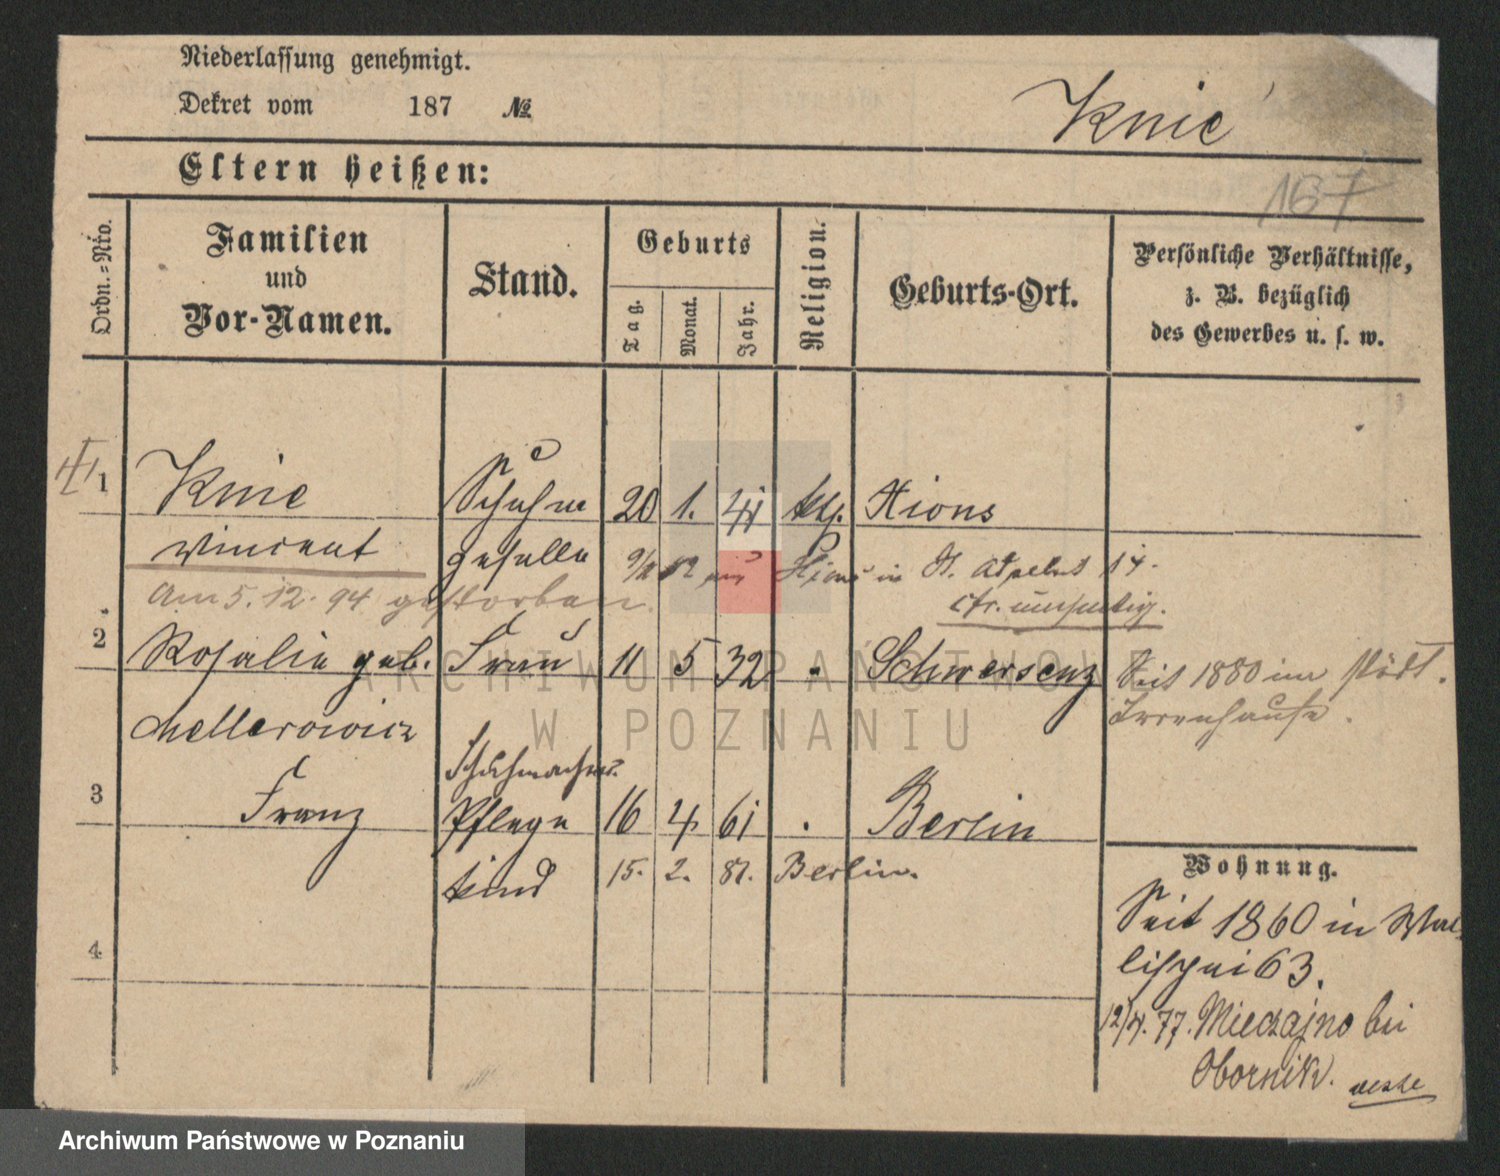 Niederlassung genehmigt.
Dekret vom 187 №
Knie
Eltern heißen:
167
Ordn.=Nro.
Familien
und
Vor-Namen.
Stand.
Geburts
Tag.
Monat.
Jahr.
Religion.
Geburts-Ort.
Persönliche Verhältnisse,
z. B. bezüglich
des Gewerbes u. s. w.
1 Knie Schuhm 20 1. 41 kth. Xions
Vincent geselle
in St. 14.
Am 5. 12. 94 gestorben.
2 Rosalie geb. Frau 11 5 32 Schwersenz
Seit 1880 im städt.
Irrenhause.
Mellerowicz
Schuhmacher
3 Franz Pflege 16 4 61 Berlin
kind 15. 2. 81. Berlin.
4
Wohnung.
Seit 1860 in Wal-
lischei 63.
12/4. 77. Mieczajno bei
Obornik.
ARCHIWUM PAŃSTWOWE
W POZNANIU
Archiwum Państwowe w Poznaniu